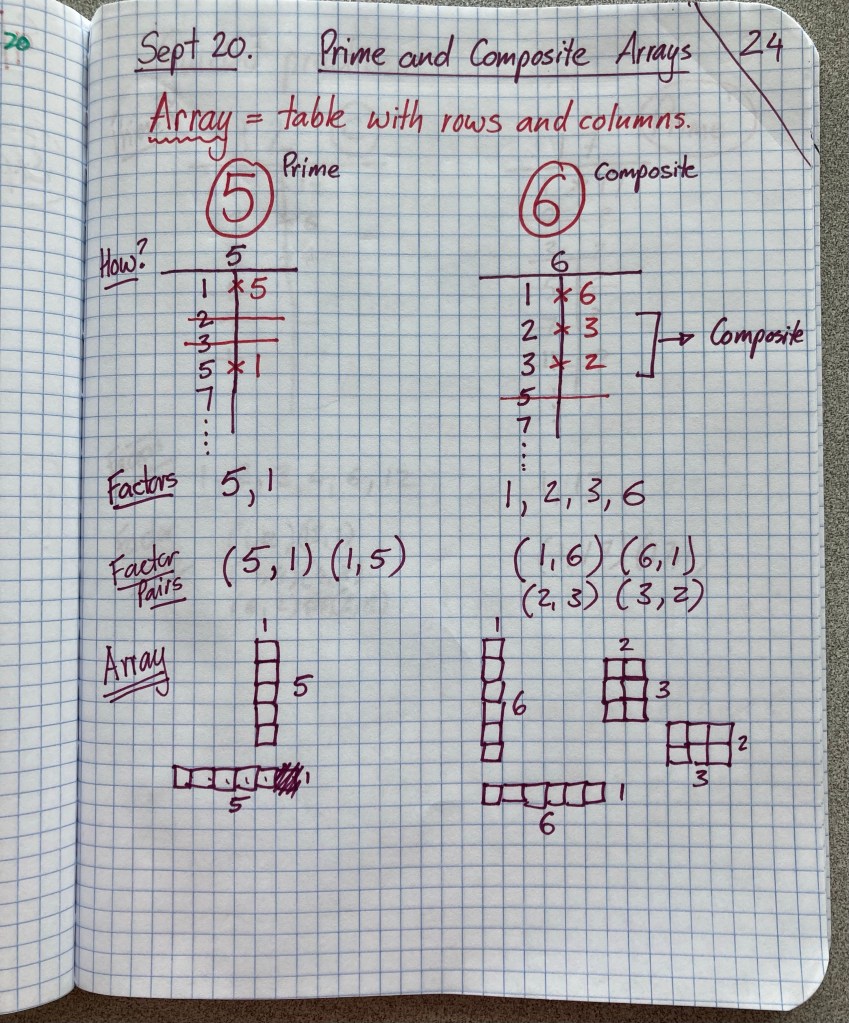 20
Sept 20. Prime and Composite Arrays 24
Array = table with rows and columns.
5 Prime 6 Composite
How? 5 6
1 × 5 1 × 6
2 2 × 3
3 3 × 2 → Composite
5 × 1 5
7 7
Factors 5, 1 1, 2, 3, 6
Factor Pairs (5, 1) (1, 5) (1, 6) (6, 1)
(2, 3) (3, 2)
Array 1 5 1 6 2 3
3 2
5 1 6 1